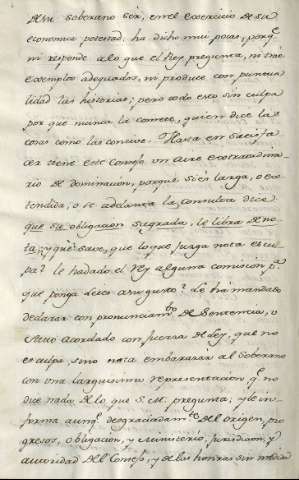 de su soberano ser, en el exercicio de su
economica potestad, ha dicho mui pocas, porq.e
ni responde a lo que el Rey pregunta, ni trae
exemplos adequados, ni produce con puntua
lidad las historias; pero todo esto sin culpa
porque nunca la comete, quien dice las
cosas como las concive. Hasta en satisfa
cer tiene este Consejo un aire extraordina
rio de dominacion, porque si es larga, o ex
tendida, o se adelanta la consulta dice
que su obligacion sagrada, le libra de no
ta; y que save, que lo que juzga nota es cul
pa? le ha dado el Rey alguna comision p.a
que ponga leies a su gusto? Le ha mandado
declarar con pronunciam.to de Sentencia, o
Auto acordado con fuerza de Ley, que no
es culpa, sino nota embarazar al Soberano
con una larguissima representacion q.e no
due nada de lo que S. M. pregunta; y le in
forma aunq.e desgraciadam.te del origen, pro
gresos, obligacion, y Ministerio, jurisdicion, y
autoridad del Consejo, y de las honras sin medida